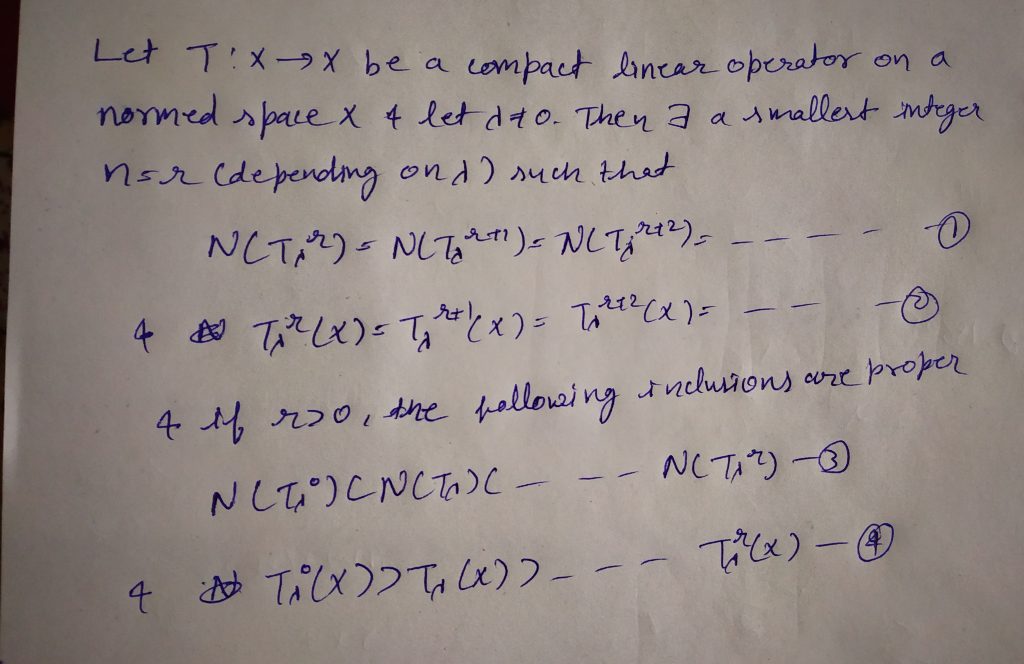 Let T: X → X be a compact linear operator on a
normed space X & let λ≠0. Then ∃ a smallest integer
n=r (depending on λ) such that
N(T_λ^r) = N(T_λ^{r+1}) = N(T_λ^{r+2}) = - - - - - ①
& T_λ^r(X) = T_λ^{r+1}(X) = T_λ^{r+2}(X) = - - - ②
& if r>0, the following inclusions are proper
N(T_λ^0) ⊂ N(T_λ) ⊂ - - - N(T_λ^r) - ③
& T_λ^0(X) ⊃ T_λ(X) ⊃ - - - T_λ^r(X) - ④